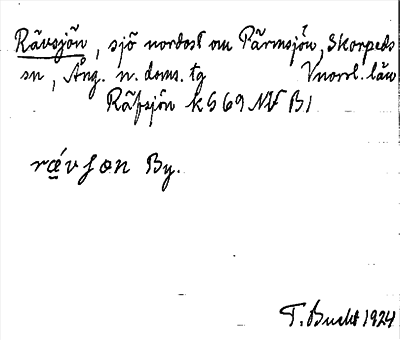 Rävsjön, sjö nordost om Pärmsjön, Skorpeds
sn, Ång. n. doms. tg Vnorrl. län
Räfsjön k S 69 NV B1
rǽvʃɷn By.
T. Bucht 1924